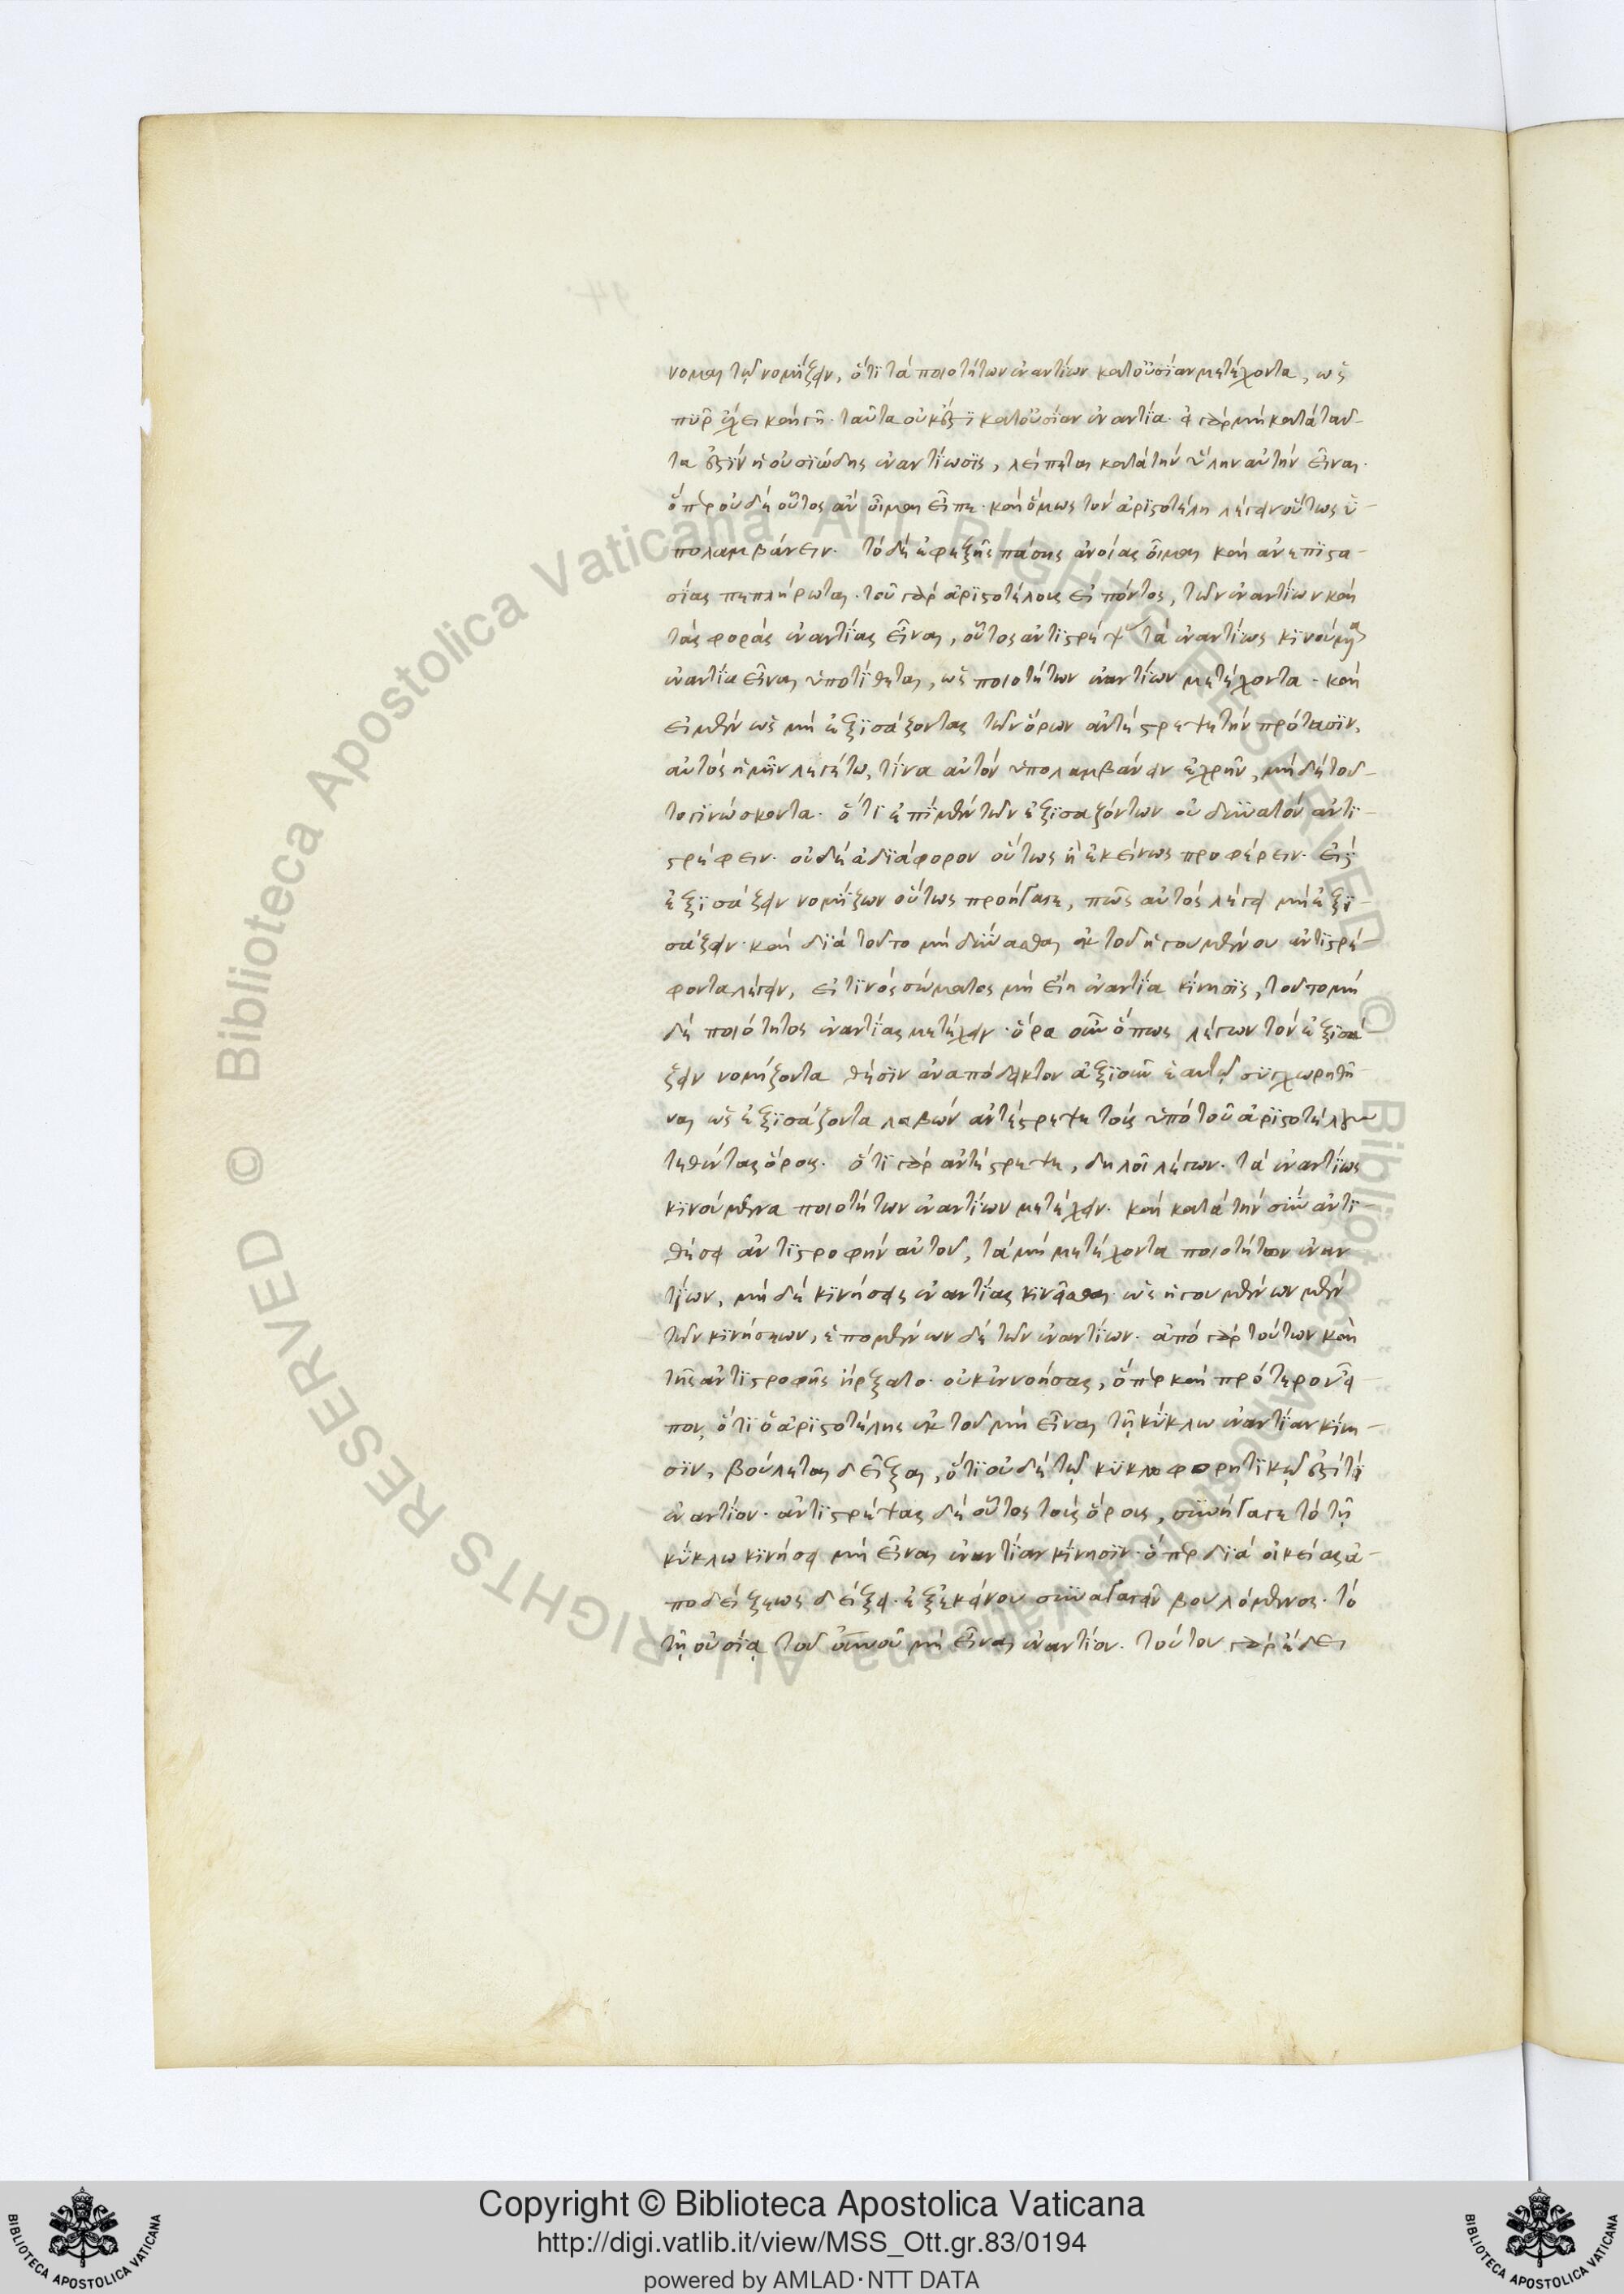 νομαι τῷ νομίζειν, ὅτι τὰ ποιοτήτων ἐναντίων κατ' οὐσίαν μετέχοντα, ὡς
πῦρ ἔχει καὶ γῆ. ταῦτα οὐκ ἔστι κατ' οὐσίαν ἐναντία. εἰ γὰρ μὴ κατὰ ταῦ-
τα ἐστὶν ἡ οὐσιώδης ἐναντίωσις, λείπεται κατὰ τὴν ὕλην αὐτὴν εἶναι.
ὅπερ οὐδὲ οὗτος ἂν οἶμαι εἶπε. καὶ ὅμως τὸν ἀριστοτέλη λέγειν οὕτως ὑ-
πολαμβάνειν. τὸ δὲ ἐφεξῆς πάσης ἀνοίας οἶμαι καὶ ἀνεπιστα-
σίας πεπλήρωται. τοῦ γὰρ ἀριστοτέλους εἰπόντος, τῶν ἐναντίων καὶ
τὰς φορὰς ἐναντίας εἶναι, οὗτος ἀντιστρέψας τὰ ἐναντίως κινούμενα
ἐναντία εἶναι ὑποτίθεται, ὡς ποιοτήτων ἐναντίων μετέχοντα. καὶ
εἰ μὲν ὡς μὴ ἐξισάζοντας τῶν ὅρων ἀντέστρεψε τὴν πρότασιν,
αὐτὸς ἡμῖν λεγέτω, τίνα αὐτὸν ὑπολαμβάνειν ἐχρῆν, μηδὲ τοῦ-
το γινώσκοντα. ὅτι ἐπὶ μὲν τῶν ἐξισαζόντων οὐ δυνατὸν ἀντι-
στρέφειν. οὐδὲ ἀδιάφορον οὕτως ἢ ἐκείνως προφέρειν. εἰ δὲ
ἐξισάζειν νομίζων οὕτως προήγαγε, πῶς αὐτὸς λέγει μὴ ἐξι-
σάζειν. καὶ διὰ τοῦτο μὴ δύνασθαι ἐκ τοῦ ἡγουμένου ἀντιστρέ-
φοντα λέγειν, εἰ τινὸς σώματος μὴ εἴη ἐναντία κίνησις, τοῦτο μη
δὲ ποιότητος ἐναντίας μετέχειν. ὅρα οὖν ὅπως λέγων τὸν ἐξισά
ζειν νομίζοντα θέσιν ἀναπόδεικτον ἀξιοῦν ἑαυτῷ συγχωρηθῆ-
ναι ὡς ἐξισάζοντα λαβὼν ἀντέστρεψε τοὺς ὑπὸ τοῦ ἀριστοτέλους
τεθέντας ὅρους. ὅτι γὰρ ἀντέστρεψε, δηλοῖ λέγων. τὰ ἐναντίως
κινούμενα ποιοτήτων ἐναντίων μετέχειν. καὶ κατὰ τὴν σὺν ἀντι-
θέσει ἀντιστροφὴν αὐτοῦ, τὰ μὴ μετέχοντα ποιοτήτων ἐναν
τίων, μηδὲ κινήσεις ἐναντίας κινεῖσθαι. ὡς ἡγουμένων μὲν
τῶν κινήσεων, ἑπομένων δὲ τῶν ἐναντίων. ἀπὸ γὰρ τούτων καὶ
τῆς ἀντιστροφῆς ἤρξατο. οὐκ ἐννοήσας, ὅπερ καὶ πρότερον εἶ-
πον, ὅτι ὁ ἀριστοτέλης ἐκ τοῦ μὴ εἶναι τῇ κύκλω ἐναντίαν κίνη-
σιν, βούλεται δεῖξαι, ὅτι οὐδὲ τῷ κυκλοφορητικῷ ἐστί τι
ἐναντίον. ἀντιστρέψας δὲ οὗτος τοὺς ὅρους, συνήγαγε τὸ τῇ
κύκλω κινήσει μὴ εἶναι ἐναντίαν κίνησιν. ὅπερ διὰ οἰκείας ἀ-
ποδείξεως δείξει. ἐξ ἐκείνου συναγαγεῖν βουλόμενος. τὸ
τῇ οὐσίᾳ τοῦ οὐνοῦ μὴ εἶναι ἐναντίον. τοῦτον γὰρ ἔδει
Copyright © Biblioteca Apostolica Vaticana
http://digi.vatlib.it/view/MSS_Ott.gr.83/0194
powered by AMLAD·NTT DATA